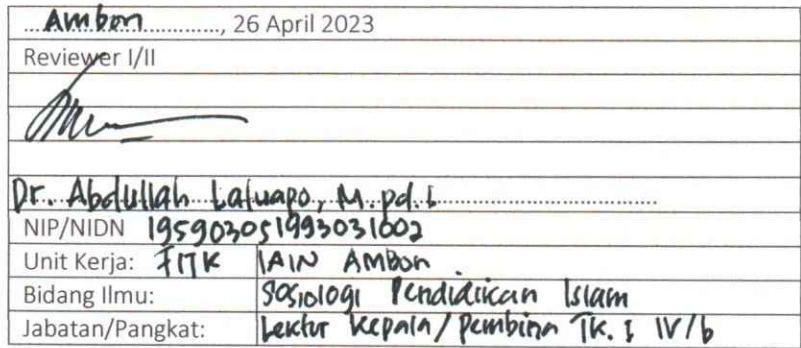 Ambon, 26 April 2023
Reviewer I/II
Dr. Abdullah Latuapo, M.pd.I
NIP/NIDN 195903051993031002
Unit Kerja: FITK IAIN AMBON
Bidang Ilmu: Sosiologi Pendidikan Islam
Jabatan/Pangkat: Lektur Kepala/Pembina TK. I IV/b